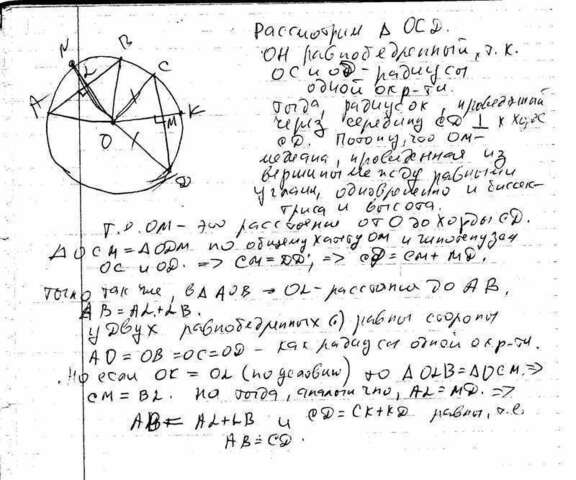 Рассмотрим Δ OCD.
N
B
C
A
L
K
M
O
D
Он равнобедренный, т.к.
OC и OD - радиусы
одной окр-ти.
Тогда, радиус OK, проведённый
через середину CD ⊥ к хорде
CD. Потому, что OM-
медиана, проведенная из
вершины между равными
углами, одновременно и биссек-
триса и высота.
Т.о. OM - это расстояние от O до хорды CD.
Δ OCM = Δ ODM по общему катету OM и гипотенузам
OC и OD. => CM = DD', => CD = CM + MD.
Точно так же, в Δ AOB → OL - расстояние до AB,
AB = AL + LB.
У двух равнобедренных Δ равны стороны
AO = OB = OC = OD - как радиусы одной окр-ти.
Но если OK = OL (по условию) то Δ OLB = Δ OCM. =>
CM = BL. Но тогда, аналогично, AL = MD. =>
AB = AL + LB и CD = CK + KD равны, т.е.
AB = CD.